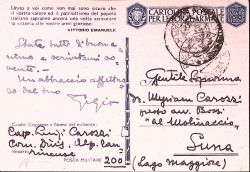 Unito a voi come non mai sono sicuro che
il vostro valore ed il patriottismo del popolo
italiano sapranno ancora una volta assicurare
la vittoria alle nostre armi gloriose.
VITTORIO EMANUELE
State tutti di buon
animo e scrivetemi
Un abbraccio
dal tuo
Cognome e Nome del mittente:
Cap. Luigi Carossi
POSTA MILITARE 200
CARTOLINA POSTALE
PER LE FORZE ARMATE
Gentile Signorina
Dr. Myriam Carossi
presso avv. Bossi
"al Molinaccio"
Suna
(Lago Maggiore)